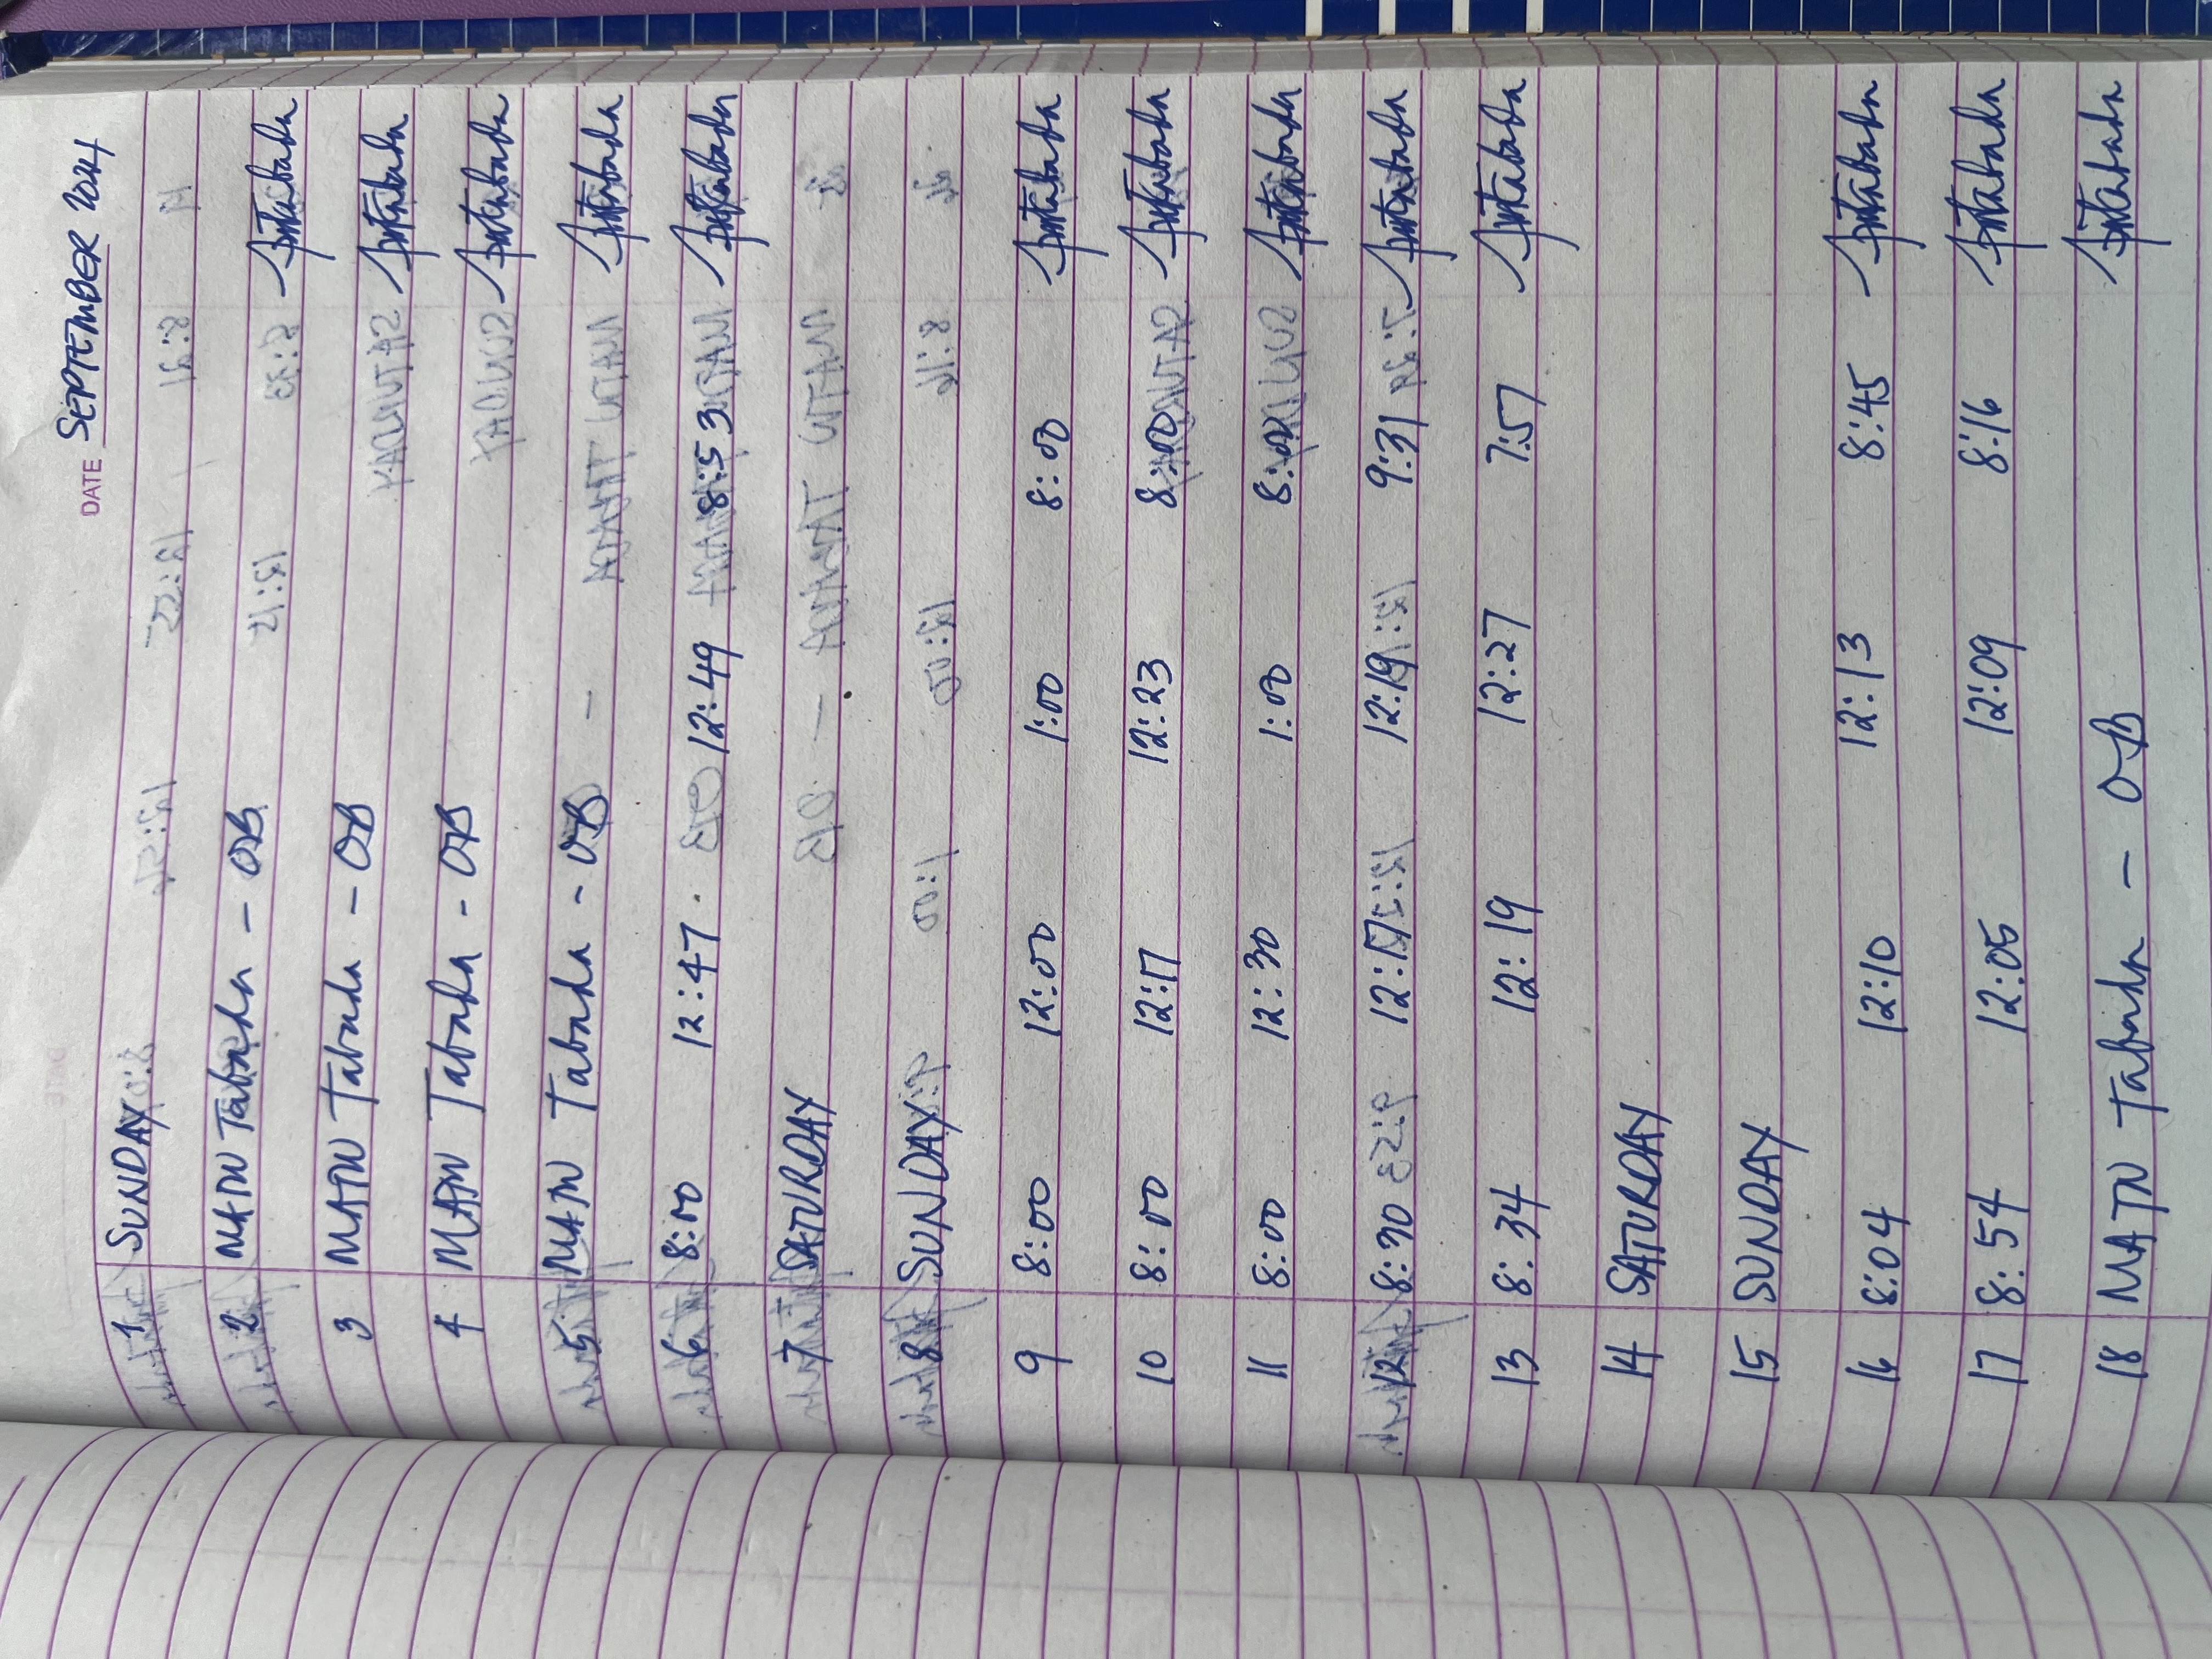 DATE SEPTEMBER 2024
1 SUNDAY
2 MATN Tabada - OB
3 MATN Tabada - OB
4 MATN Tabada - OB
5 MATN Tabada - OB
6 8:00 12:47 12:49 8:53
7 SATURDAY
8 SUNDAY
9 8:00 12:00 1:00 8:00
10 8:00 12:17 12:23 8:00
11 8:00 12:30 1:00 8:00
12 8:30 12:17 12:19 9:31
13 8:34 12:19 12:27 7:57
14 SATURDAY
15 SUNDAY
16 8:04 12:10 12:13 8:45
17 8:54 12:05 12:09 8:16
18 MATN Tabada - OB